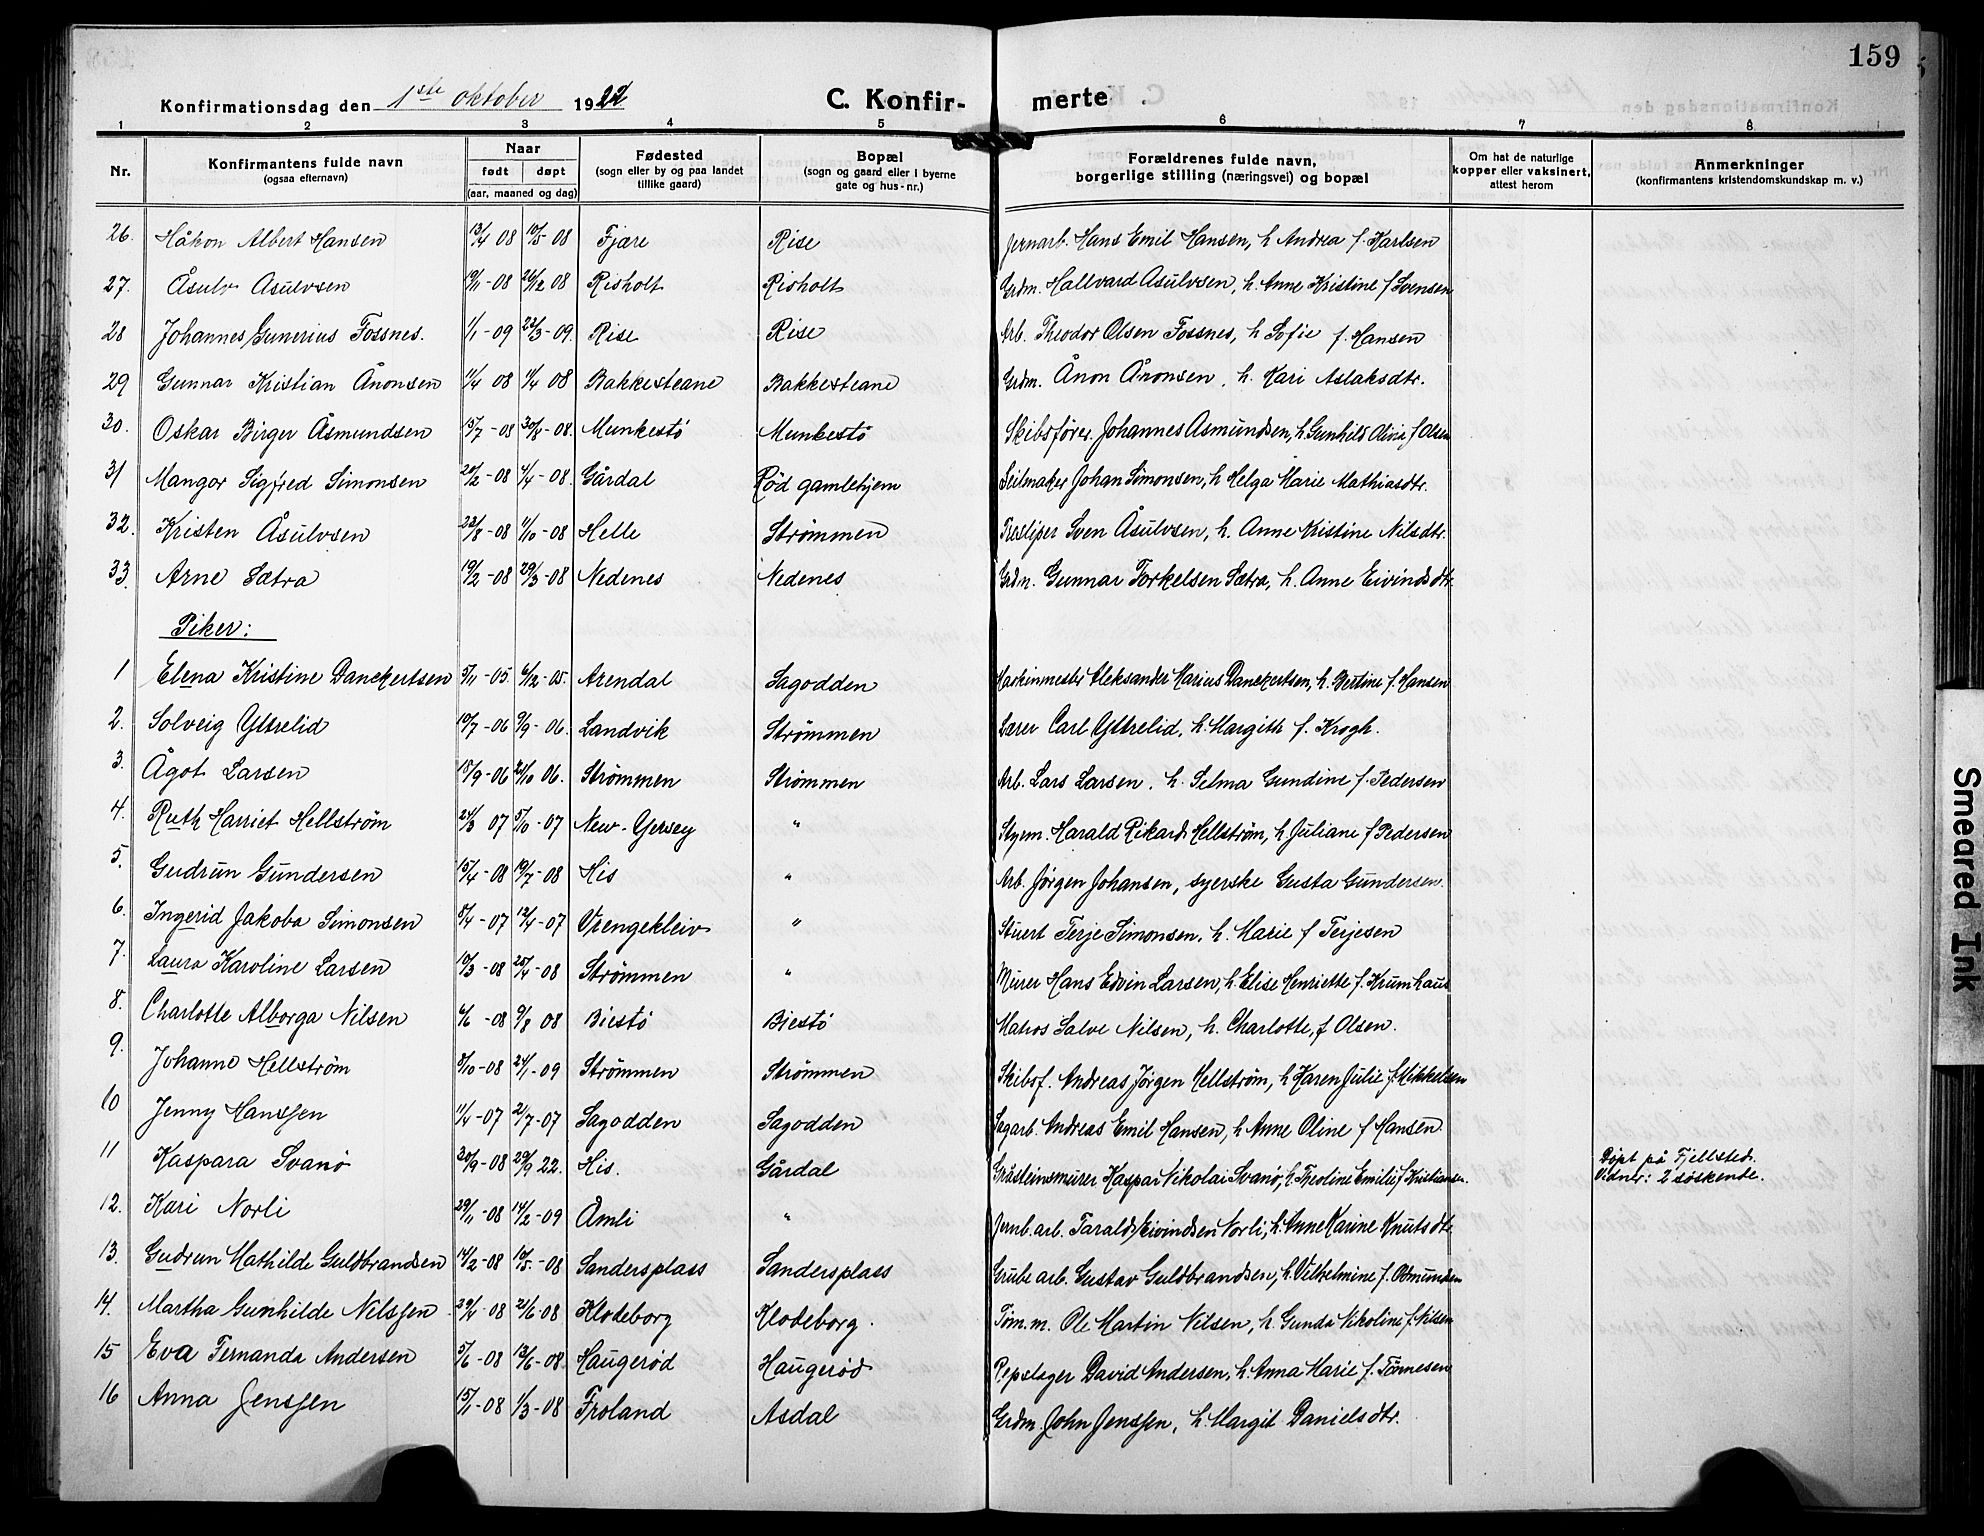 159
Konfirmationsdag den 1ste oktober 1922 C. Konfir- merte
1 2 3 4 5 6 7 8
Nr. Konfirmantens fulde navn (ogsaa efternavn) Naar født døpt (aar, maaned og dag) Fødested (sogn eller by og paa landet tillike gaard) Bopæl (sogn og gaard eller i byerne gate og hus-nr.) Forældrenes fulde navn, borgerlige stilling (næringsvei) og bopæl Om hat de naturlige kopper eller vaksinert, attest herom Anmerkninger (konfirmantens kristendomskundskap m. v.)
26. Håkon Albert Hansen 13/4 08 10/5 08 Fjære Rise Jernarb. Hans Emil Hansen, h Andrea f. Karlsen
27. Åsulv Asulvsen 19/1-08 26/2 08 Risholt Risholt Grdm. Hallvard Asulvsen, h. Anne Kristine f Svensen
28 Johannes Gunerius Fossnes. 1/1-09 22/3-09. Rise Rise Arb. Theodor Olsen Fossnes, h Sofie f. Hansen
29 Gunnar Kristian Ånonsen 11/4 08 1/4 08 Bakkesteane Bakkesteane Grdm. Ånon Ånonsen. h. Kari Aslaksdtr.
30. Oskar Birger Åsmundsen 15/7-08 30/8-08. Munkestø Munkestø Skibsfører. Johannes Asmundsen, h. Gunhild Olivia f Olsen
31 Mangor Sigfred Simonsen 20/2-08 4/4-08. Gårdal Rød gamlehjem Seilmaker Johan Simonsen, h Helga Marie Mathiasdtr.
32. Kristen Åsulvsen 22/8-08 1/10-08 Helle Strømmen Træsliper Sven Åsulvsen, h. Anne Kristine Nilsdtr.
33 Arne Sætra 19/2-08 29/3-08 Nedenes Nedenes Grdm. Gunnar Torkelsen Sætra, h. Anne Eivindsdtr.
Piker:
1 Elena Kristine Danckertsen 5/11-05. 6/12-05. Arendal Sagodden Maskinmester Aleksander Marius Danckertsen, h. Bertine f. Hansen
2. Solveig Ystrelid 19/7-06 9/9-06. Landvik Strømmen Lærer Carl Ystrelid, h. Margith f. Krogh.
3. Ågot Larsen 18/9-06 21/10 06. Strømmen Strømmen Arb. Lars Larsen. h. Selma Gundine f. Pedersen
4. Ruth Harriet Hellstrøm 24/3 07 5/10-07 New-Yersey " Styrm. Harald Rikard Hellstrøm, h Juliane f Pedersen
5. Gudrun Gundersen 15/4-08 19/7-08 His " Arb. Jørgen Johansen, syerske Gusta Gundersen.
6. Ingerid Jakoba Simonsen 8/4-07 12/4-07 Vrengekleiv " Stuert Terje Simonsen. h. Marie f Terjesen
7. Laura Karoline Larsen 10/3-08 25/4-08 Strømmen " Murer Hans Edvin Larsen, h. Elise Henriette f. Krumhaus
8. Charlotte Alborga Nilsen 6/6-08 9/8 08 Biestø Biestø Matros Salve Nilsen, h. Charlotte, f Olsen.
9. Johanne Hellstrøm 8/10-08 24/1-09 Strømmen Strømmen Skibsf. Andreas Jørgen Hellstrøm, h Karen Julie f. Mikkelsen
10 Jenny Hanssen 11/4-07 2/7-07 Sagodden Sagodden Sagarb. Andreas Emil Hansen, h Anne Oline f Hansen
11 Kaspara Svanø 20/9-08 29/9 22. His. Gårdal Gråsteinsmurer Kaspar Nikolai Svanø, h. Theoline Emilie f Kristiansen. Døpt på Fjellsted. Vidner: 2 søskende.
12. Kari Norli 29/11-08 14/2-09 Åmli " Jernb. arb. Tarald Eivindsen Norli, h. Anne Karine Knutsdtr
13. Gudrun Mathilde Guldbrandsen 14/2-08 10/5-08 Sandersplass Sandersplass Grube arb. Gustav Guldbrandsen, h. Vilhelmine f. Osmundsen
14. Martha Gunhilde Nilssen 29/4-08 21/6-08 Klodeborg Klodeborg. Tøm. m. Ole Martin Nilsen, h Gunda Nikoline f. Nilsen
15 Eva Fernanda Andersen 5/6-08 12/6-08. Haugerød Haugerød Repslager David Andersen, h. Anna Marie f. Tønnesen
16 Anna Jenssen 15/1-08 1/3-08 Froland Asdal Grdm. John Jenssen, h. Margit Danielsdtr.
Smeared Ink